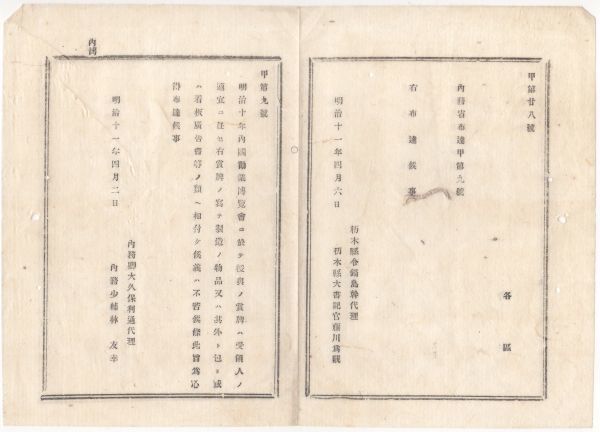 甲第廿八號
各區
内務省布達甲第九號
右布達候事
明治十一年四月六日
栃木縣令鍋島幹代理
栃木縣大書記官藤川爲親
内務
甲第九號
明治十年内國勸業博覽會ニ於テ授與ノ賞牌ハ受領人ノ
適宜ニ任セ右賞牌ノ寫ヲ製造ノ物品又ハ其外ト包ミ或
ハ看板廣告書等ノ類ヘ相付ケ候義ハ不苦候條此旨爲心
得布達候事
明治十一年四月二日
内務卿大久保利通代理
内務少輔林友幸